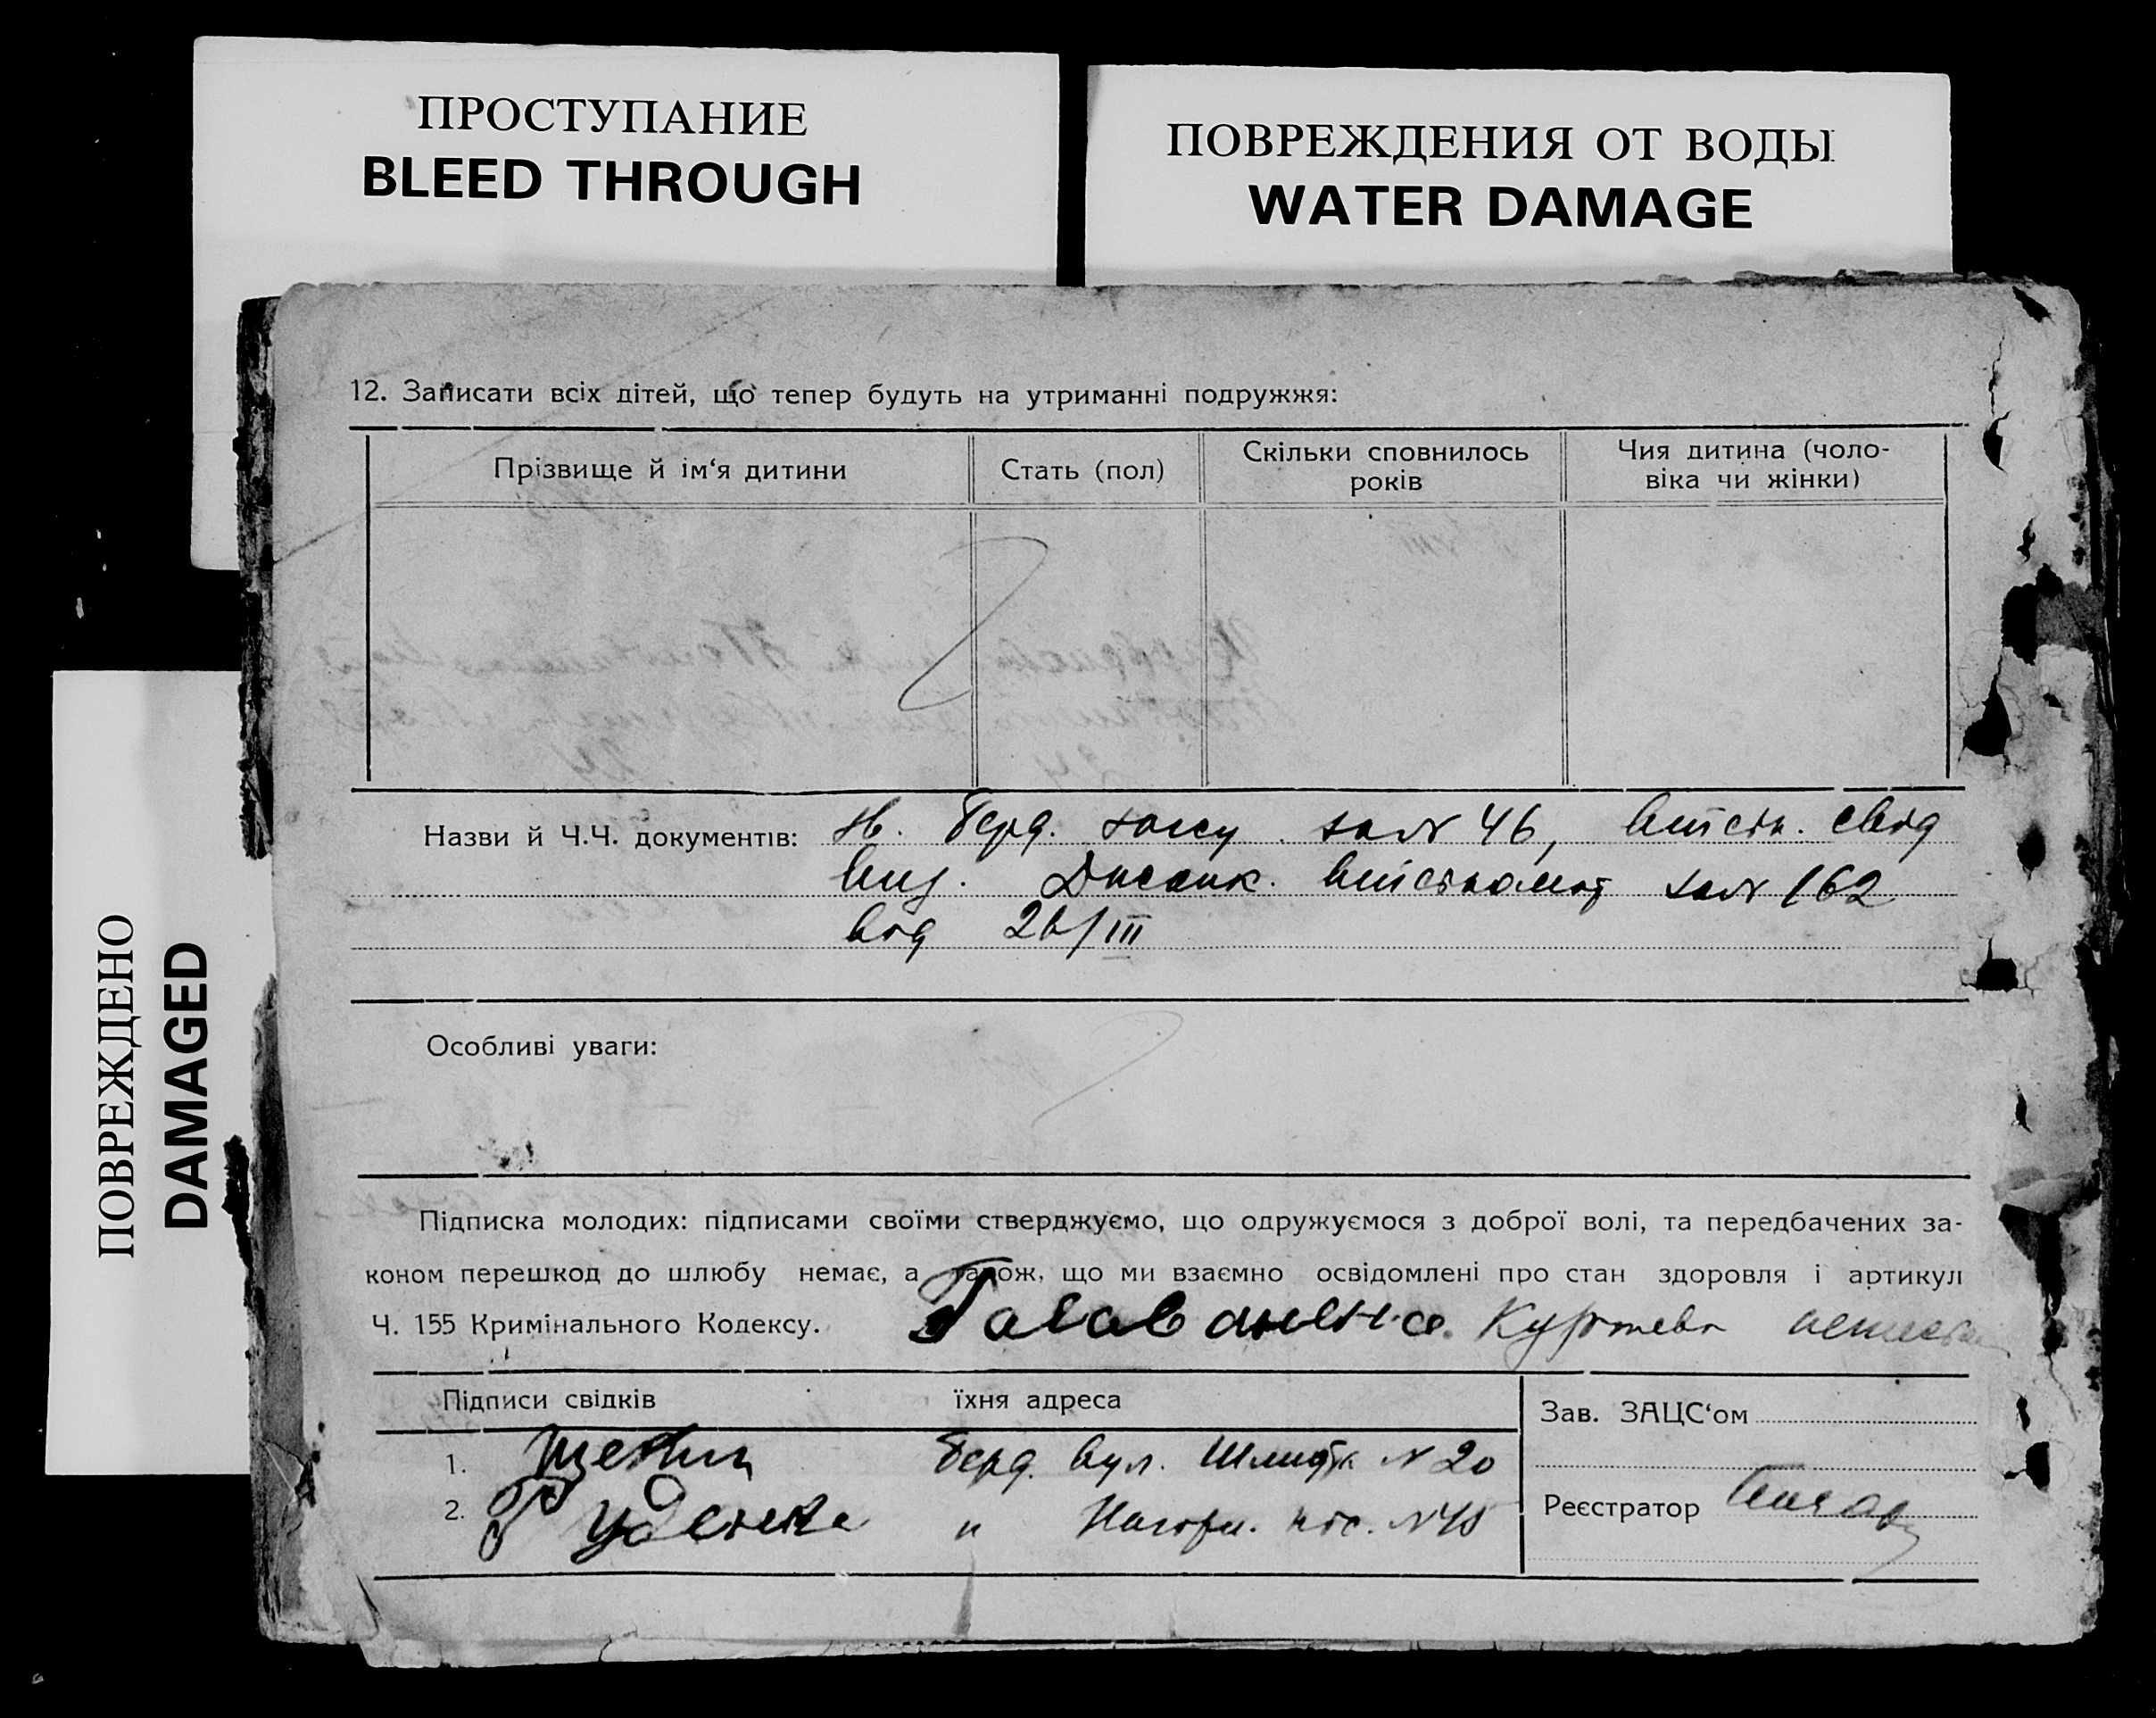 ПРОСТУПАНИЕ
BLEED THROUGH
ПОВРЕЖДЕНИЯ ОТ ВОДЫ
WATER DAMAGE
ПОВРЕЖДЕНО
DAMAGED
12. Записати всіх дітей, що тепер будуть на утриманні подружжя:
Прізвище й ім‘я дитини
Стать (пол)
Скільки сповнилось
років
Чия дитина (чоло-
віка чи жінки)
Назви й Ч.Ч. документів: Берд. за № 46,
за № 162
від 26/III
Особливі уваги:
Підписка молодих: підписами своїми стверджуємо, що одружуємося з доброї волі, та передбачених за-
коном перешкод до шлюбу немає, а також, що ми взаємно освідомлені про стан здоровля і артикул
Ч. 155 Кримінального Кодексу.
Підписи свідків їхня адреса
1. Берд. вул. Шмидта № 20
2. Руденко " Нагорн.
Зав. ЗАЦС‘ом
Реєстратор